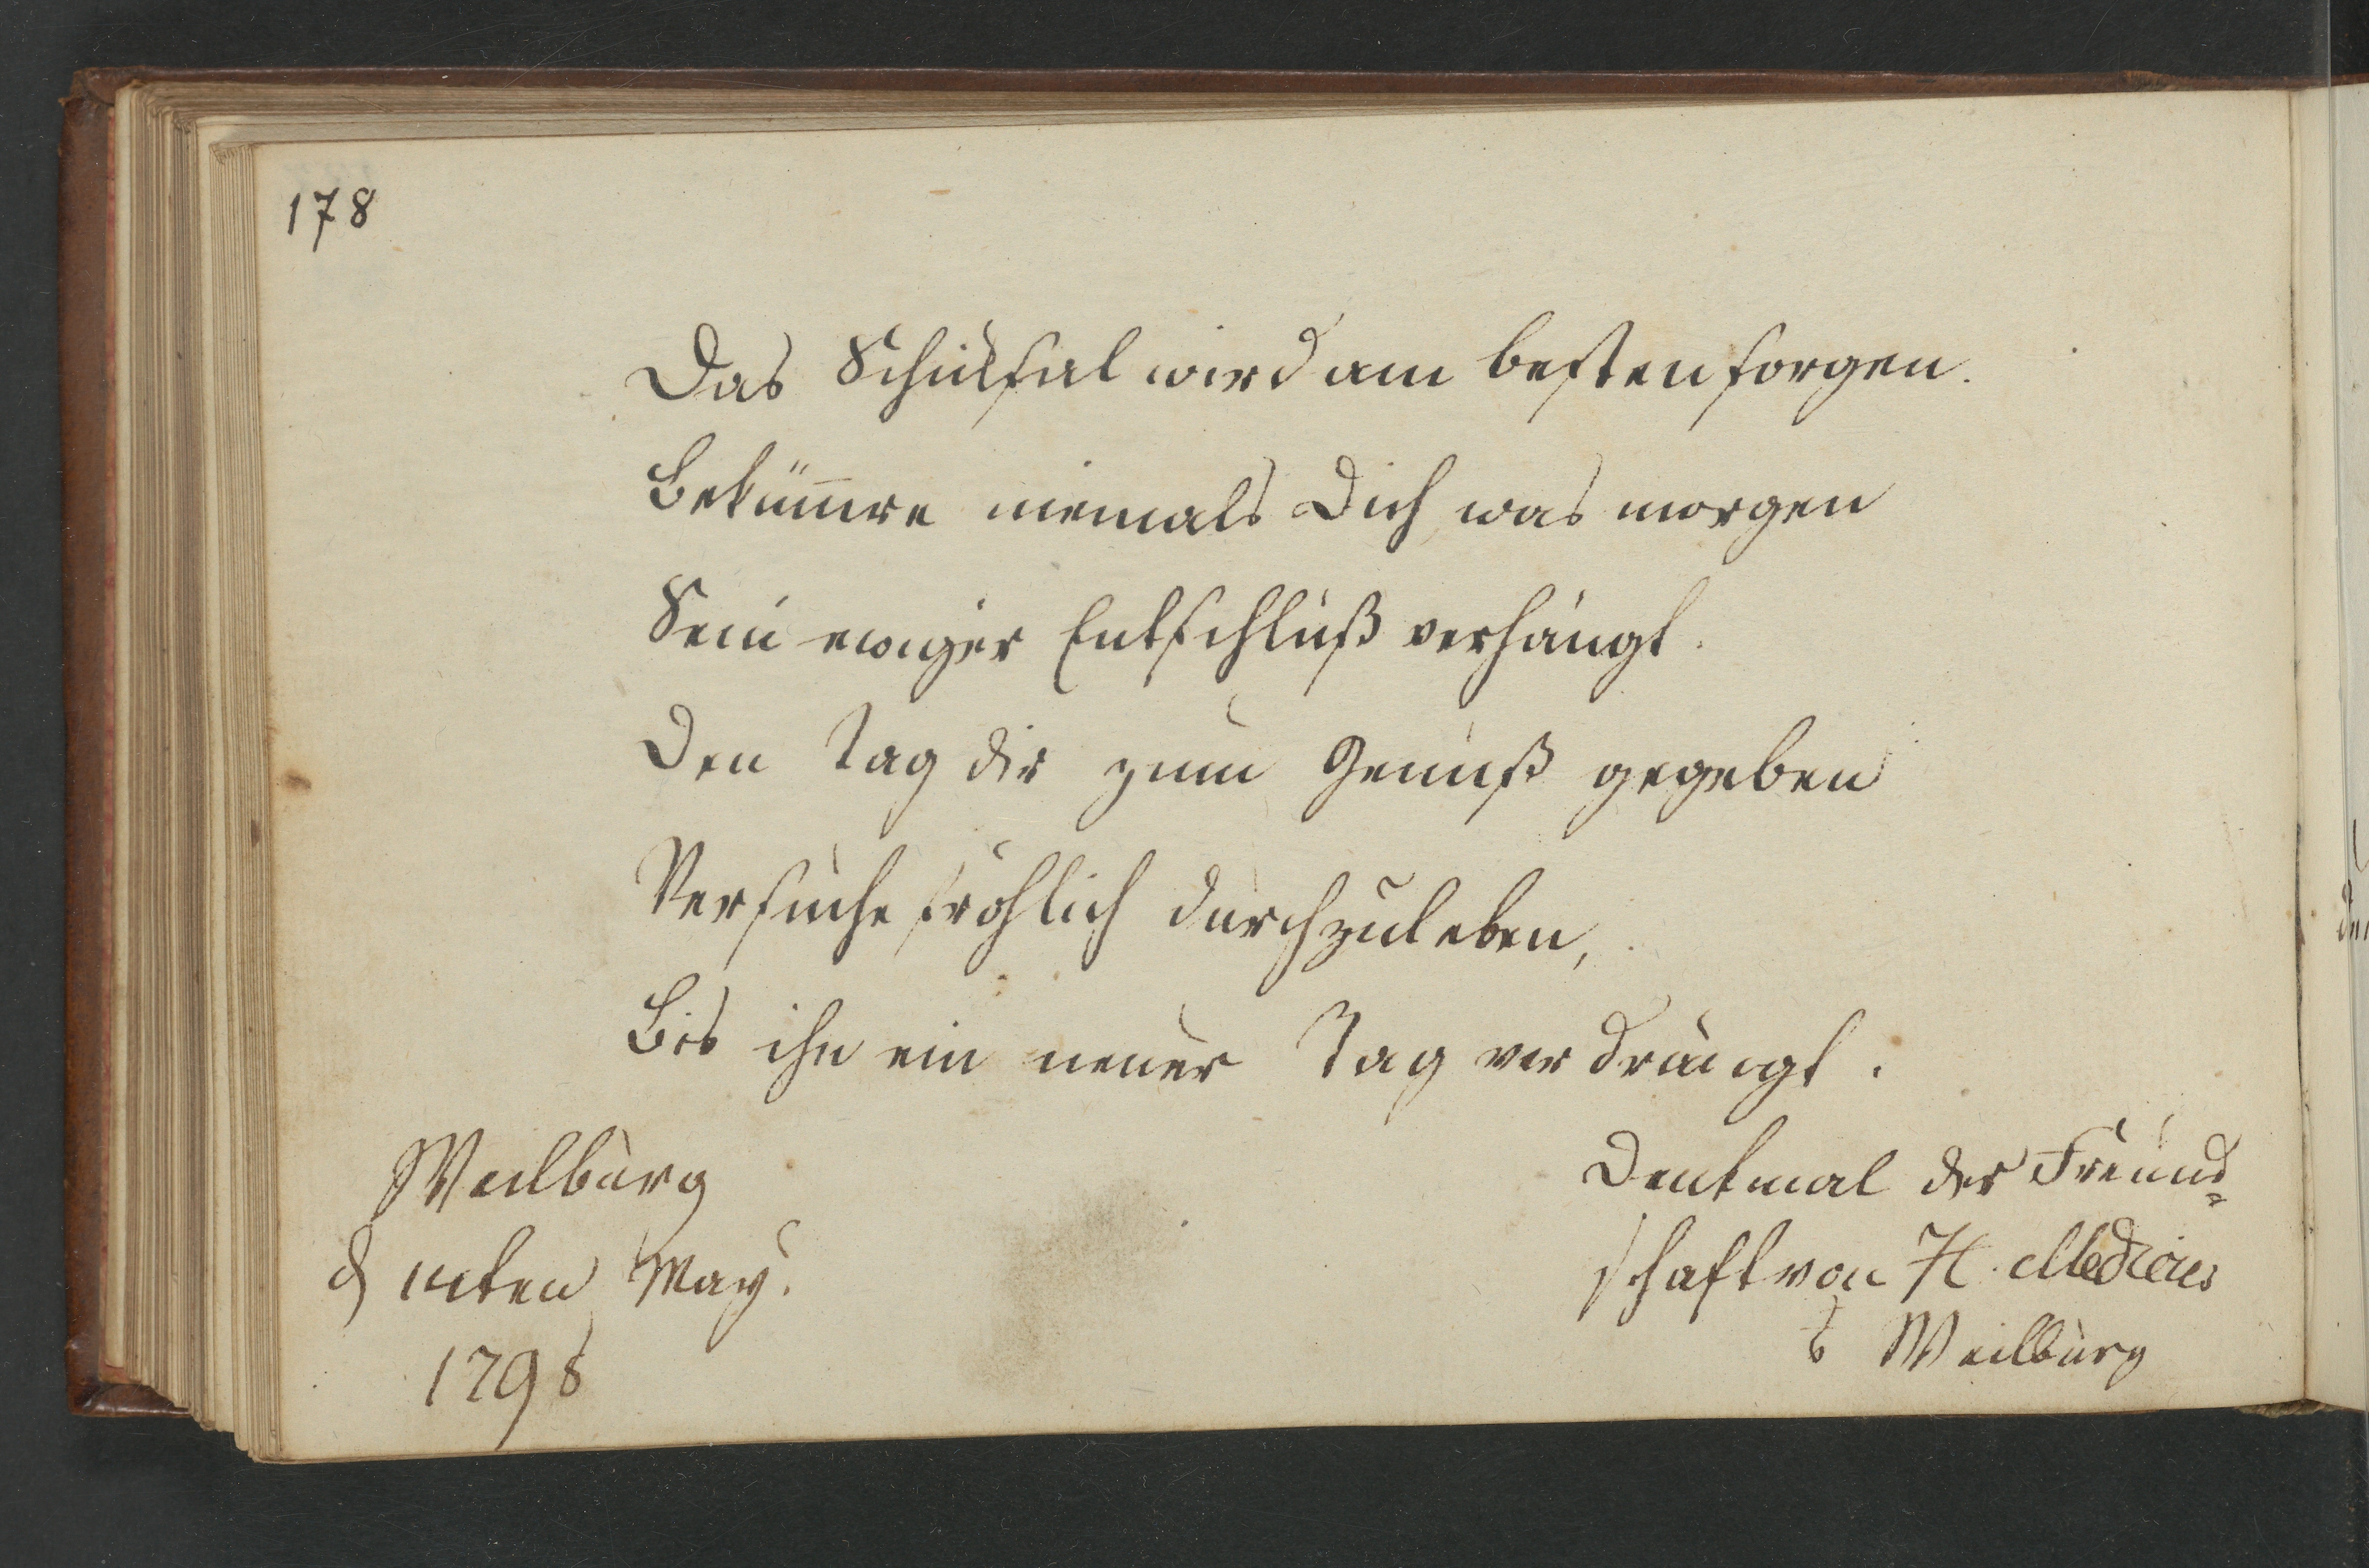 178
Das Schiksal wird am besten sorgen.
Bekümre niemals Dich, was morgen
Sein ewiger Entschluß verhängt.
Den Tag dir zum Genuß gegeben
Versuche fröhlich durchzuleben,
Bis ihn ein neuer Tag verdrängt.
Weilburg
d ten May.
1798
Denkmal der Freund=
schaft von H. Medicus
Weilburg